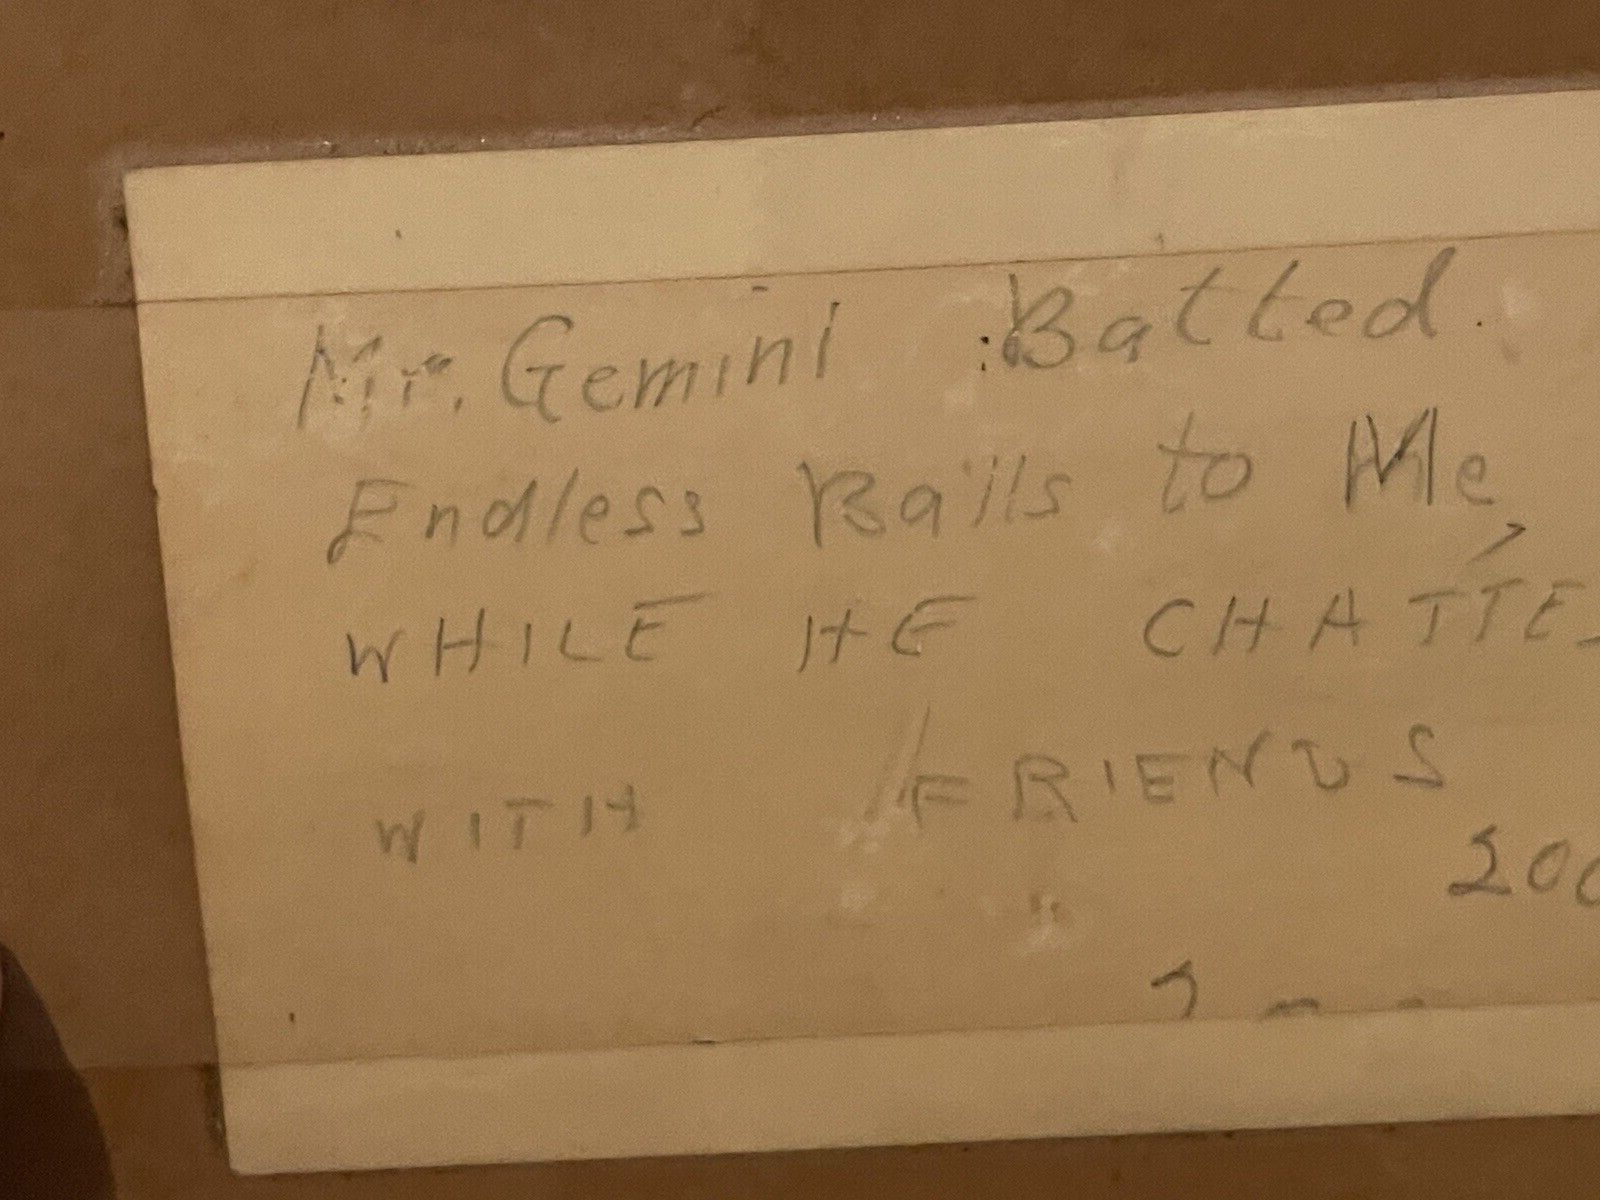 Mr. Gemini Batted.
Endless Balls to Me,
WHILE HE CHATTE
WITH FRIENDS
200